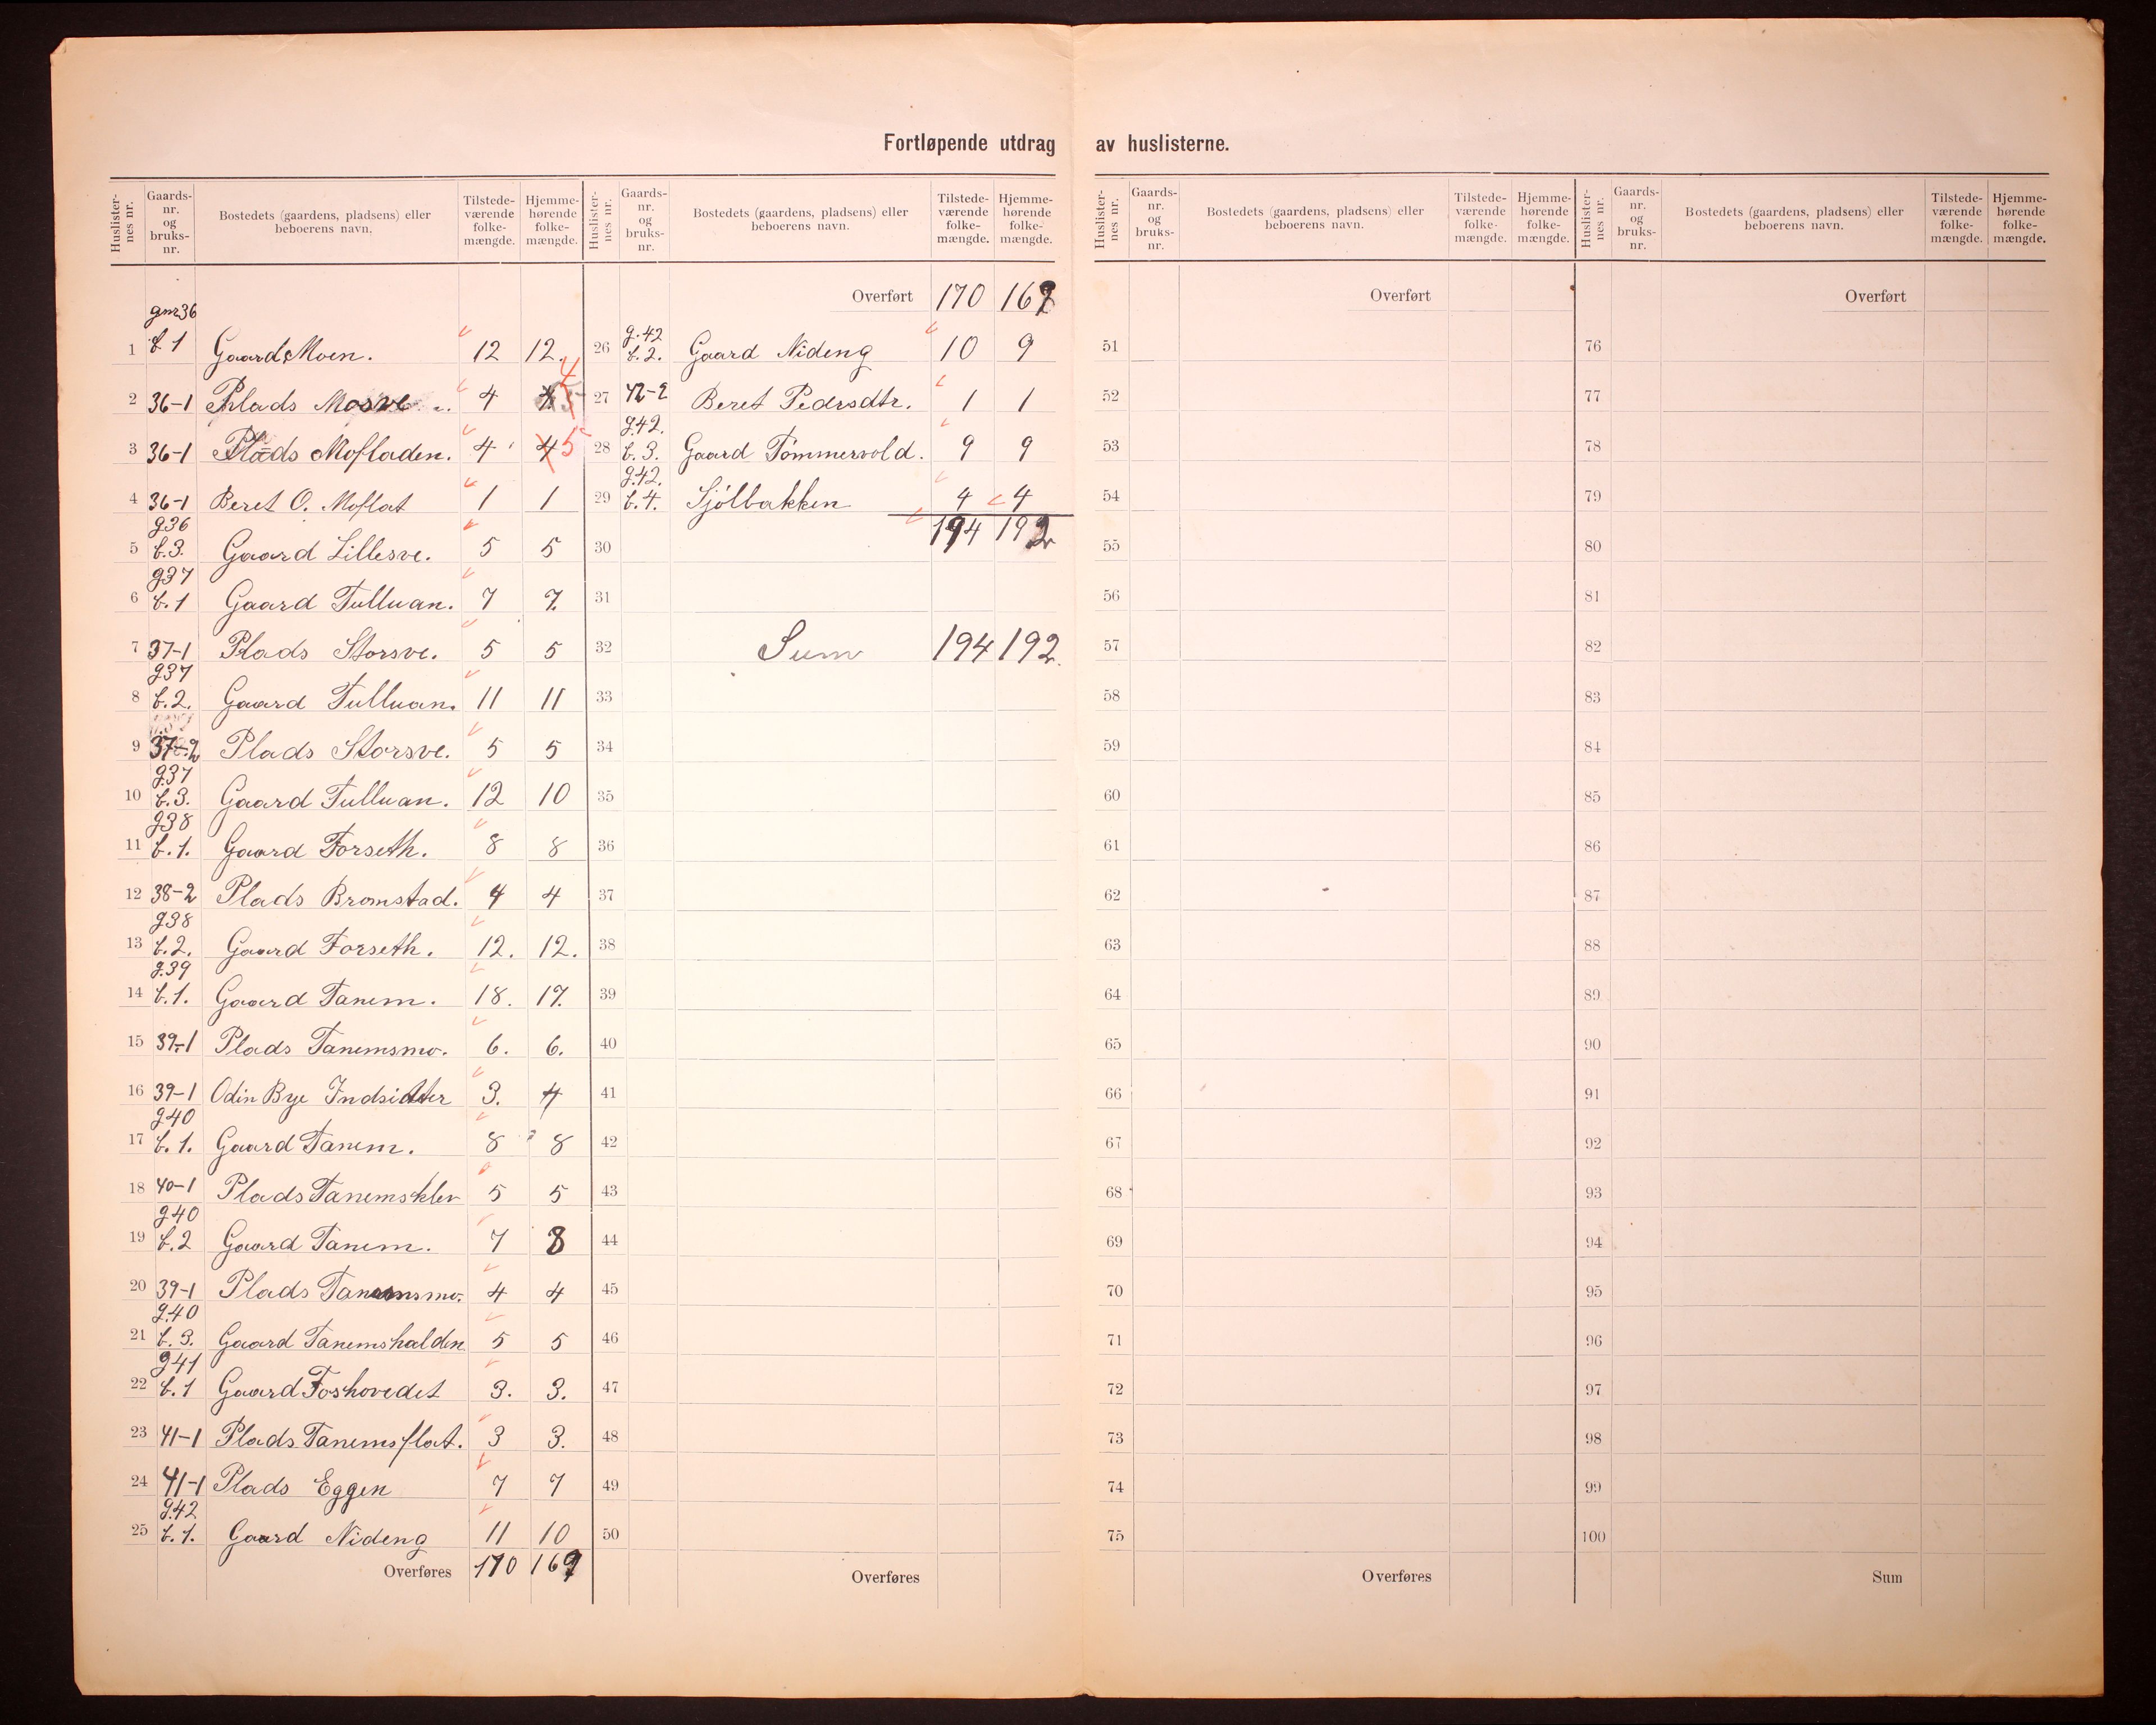 Fortløpende utdrag av huslisterne.
Huslister-nes nr. Gaards-nr. og bruks-nr. Bostedets (gaardens, pladsens) eller beboerens navn. Tilstede-værende folke-mængde. Hjemme-hørende folke-mængde.
gnr 36
1 b 1 Gaard Moen. 12 12.
2 36-1 Plads Mosve 4 4
3 36-1 Plads Mofladen. 4 4 5
4 36-1 Beret O. Moflat 1 1
g36
5 b.3. Gaard Lillesve. 5 5
g37
6 b.1 Gaard Tulluan. 7 7.
7 37-1 Plads Storsve. 5 5
g37
8 b.2. Gaard Tulluan. 11 11
9 37-2 Plads Storsve. 5 5
g37
10 b.3. Gaard Tulluan. 12 10
g38
11 b.1. Gaard Forseth. 8 8
12 38-2 Plads Bromstad. 4 4
g38
13 b.2. Gaard Forseth. 12. 12.
g.39
14 b.1. Gaard Tanem. 18. 17.
15 39-1 Plads Tanemsmo. 6. 6.
16 39-1 Odin Bye Indsidder 3. 4
g40
17 b.1. Gaard Tanem. 8 8
18 40-1 Plads Tanemsklev 5 5
g40
19 b.2 Gaard Tanem. 7 8
20 39-1 Plads Tanemsmo. 4 4
g.40
21 b.3. Gaard Tanemshalden 5 5
g41
22 b.1 Gaard Foshovedet 3. 3.
23 41-1 Plads Tanemsflat. 3 3.
24 41-1 Plads Eggen 7 7
g.42
25 b.1. Gaard Nideng 11 10
Overføres 170 169
Huslister-nes nr. Gaards-nr. og bruks-nr. Bostedets (gaardens, pladsens) eller beboerens navn. Tilstede-værende folke-mængde. Hjemme-hørende folke-mængde.
Overført 170 169
g.42
26 b.2. Gaard Nideng 10 9
27 42-2 Beret Pedrsdtr. 1 1
g42.
28 b.3. Gaard Tömmervold. 9 9
g.42.
29 b.4. Sjölbakken 4 4
30 194 192
31
32 Sum 194 192.
33
34
35
36
37
38
39
40
41
42
43
44
45
46
47
48
49
50
Overføres
Huslister-nes nr. Gaards-nr. og bruks-nr. Bostedets (gaardens, pladsens) eller beboerens navn. Tilstede-værende folke-mængde. Hjemme-hørende folke-mængde.
Overført
51
52
53
54
55
56
57
58
59
60
61
62
63
64
65
66
67
68
69
70
71
72
73
74
75
Overføres
Huslister-nes nr. Gaards-nr. og bruks-nr. Bostedets (gaardens, pladsens) eller beboerens navn. Tilstede-værende folke-mængde. Hjemme-hørende folke-mængde.
Overført
76
77
78
79
80
81
82
83
84
85
86
87
88
89
90
91
92
93
94
95
96
97
98
99
100
Sum